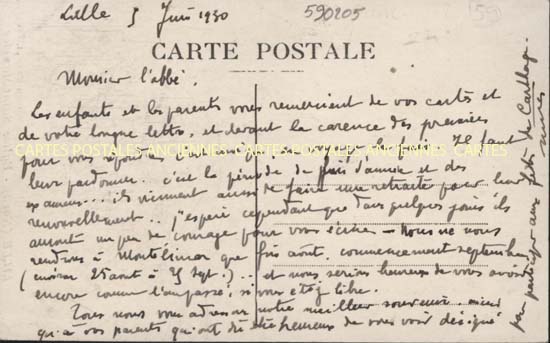 Lille 5 Juin 1930
590205
CARTE POSTALE
Monsieur l'abbé.
Les enfants et les parents vous remercient de vos cartes et
de votre longue lettre, et devant la carence des premiers
pour vous répondre Il faut
CARTES POSTALES ANCIENNES CARTES POSTALES ANCIENNES CARTES
leur pardonner. c'est la période de fin d'année et des
examens... ils viennent aussi de faire une retraite pour leur
renouvellement.. j'espère cependant que dans quelques jours ils
auront un peu de courage pour vous écrire - Nous ne nous
rendrons à Montélimar que fin août, commencement septembre
(environ 25 août à 5 Sept.).. et nous serions heureux de vous avoir
encore comme l'an passé, si vous étiez libre.
Tous nous vous adressons notre meilleur souvenir ainsi
qu'à vos parents qui ont dû être heureux de vous voir désigné
pour participer aux fêtes de Carthage.